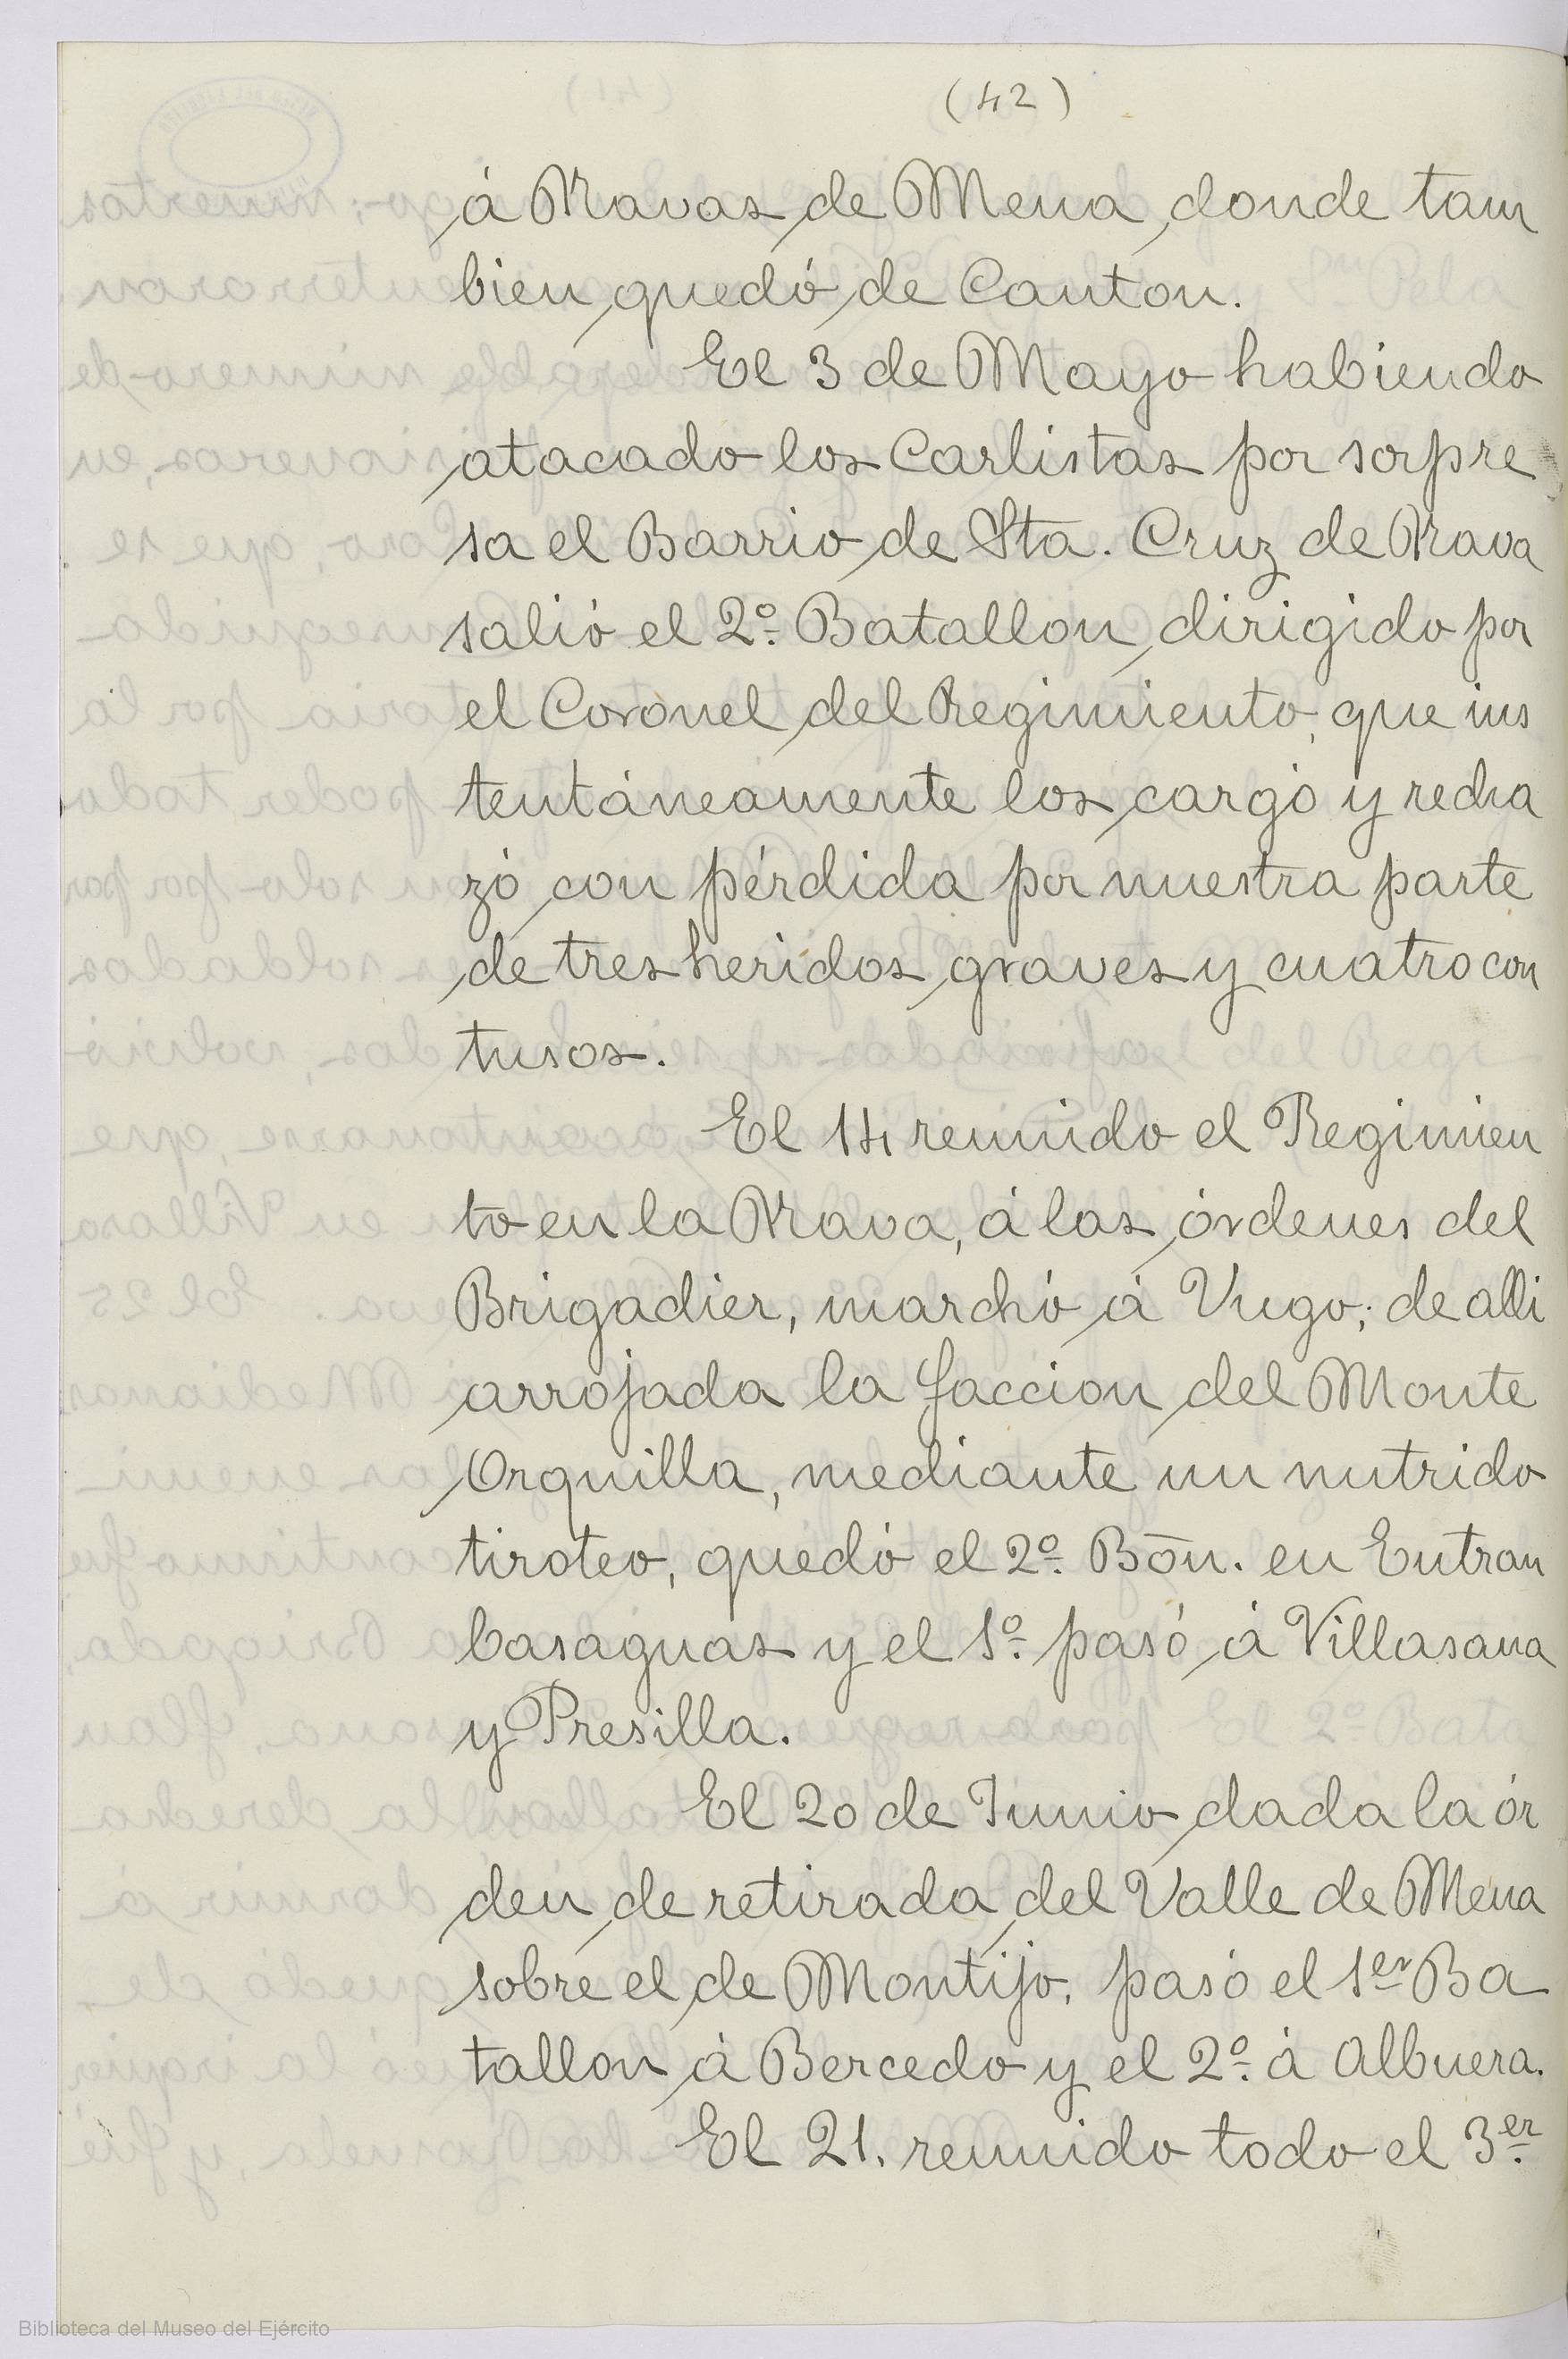 (42)
á Navas de Mena donde tam
bien quedó de Canton.
El 3 de Mayo habiendo
atacado los Carlistas por sorpre
sa el Barrio de Sta. Cruz de Nava
salió el 2º Batallon dirigido por
el Coronel del Regimiento, que ins
tentáneamente los cargó y recha
zó con pérdida por nuestra parte
de tres heridos graves y cuatro con
tusos.
El 14 reunido el Regimien
to en la Nava, á las órdenes del
Brigadier, marchó á Vugo; de alli
arrojada la faccion del Monte
Orquilla, mediante un nutrido
tiroteo, quedó el 2º Bōn. en Entran
basaguas y el 1º pasó á Villasana
y Presilla.
El 20 de Junio dada la ór
den de retirada del Valle de Mena
sobre el de Montijo, pasó el 1er Ba
tallon á Bercedo y el 2º á Albuera.
El 21. reunido todo el 3er
Biblioteca del Museo del Ejército